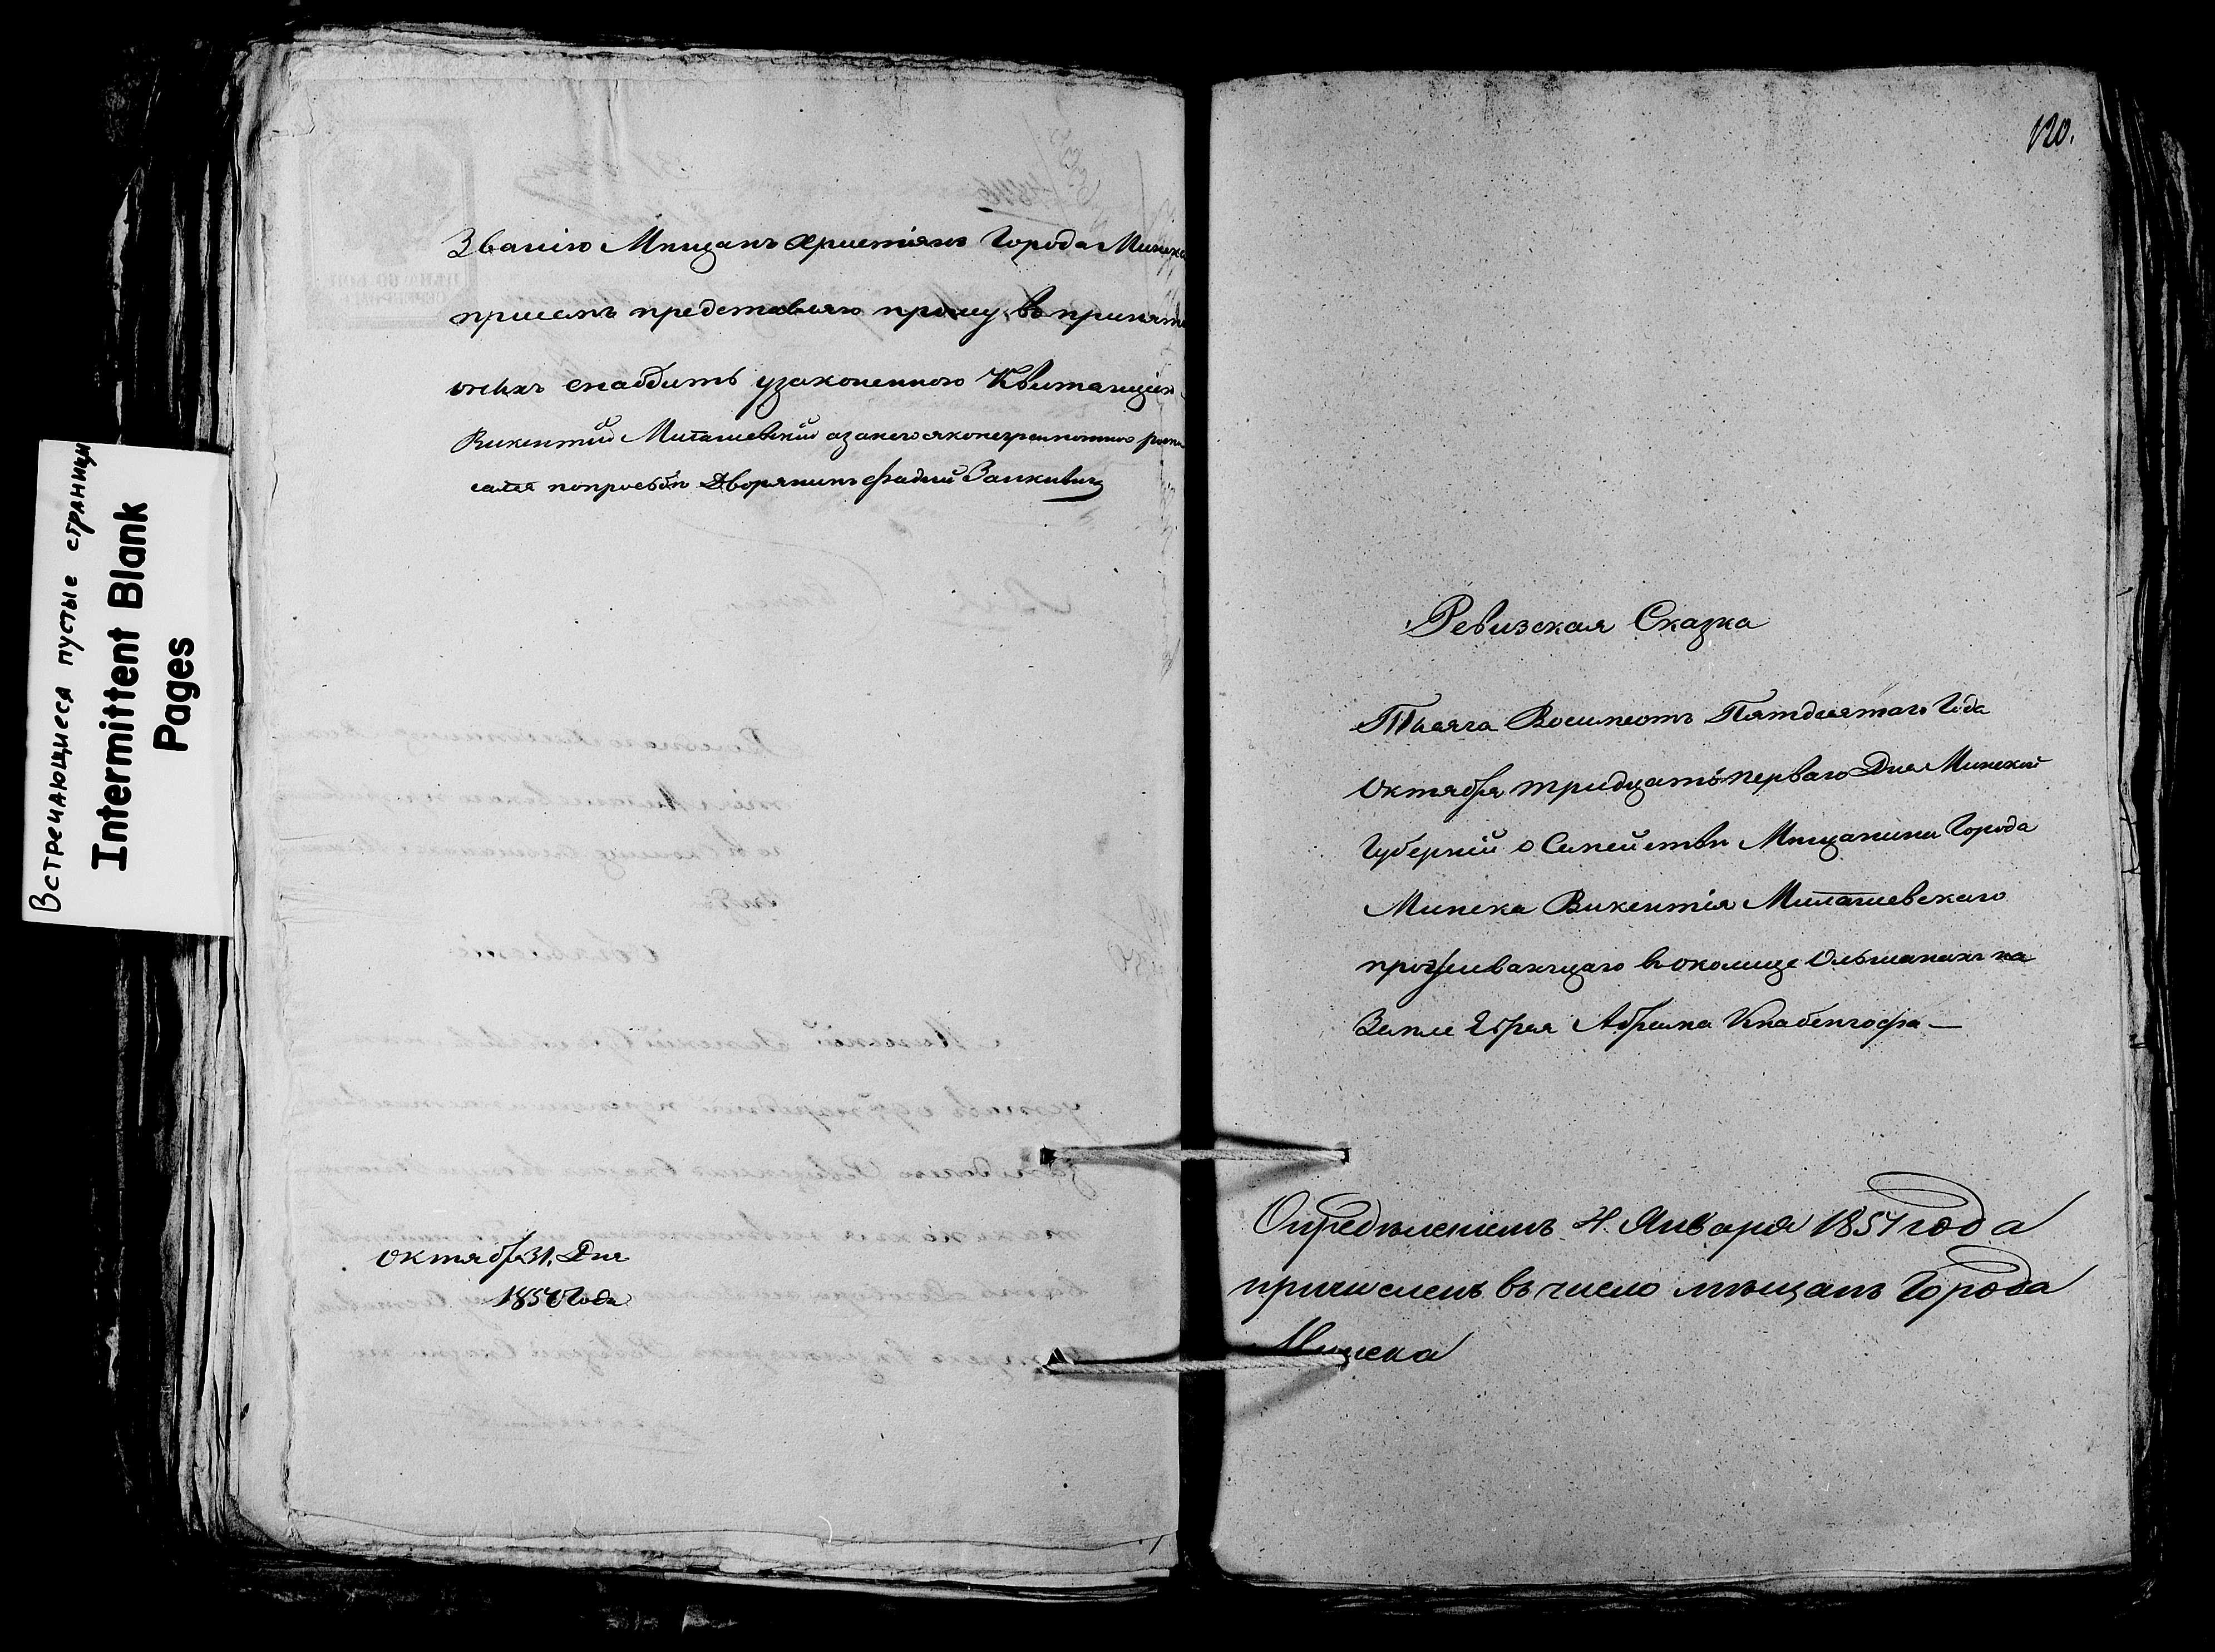 Встречающиеся пустые страницы
Intermittent Blank
Pages
Званію Мпщанъ Христіянъ Города Минска
приемъ представляю прошу въ приняти
онихъ снабдить узаконенною Квитанціею
Викентій Миташевскій азанегояконеграмотного роспи
сался попрозбѣ Дворянинъ Фадѣй Занкевичъ
Октября 31. Дня
1850 Года
120.
Ревизская Сказка
Тысяча Восимсотъ Пятдесятаго Года
Октября тридцать перваго Дня Минской
Губерніи о Семействѣ Мѣщанина Города
Минска Викентія Миташевского
проживающаго въ околице Ольшанахъ на
Земле Еврея Абрама Кнабенгофа —
Опредѣленіемъ 4. Января 1851 года
причисленъ въ число мѣщанъ Города
Минска